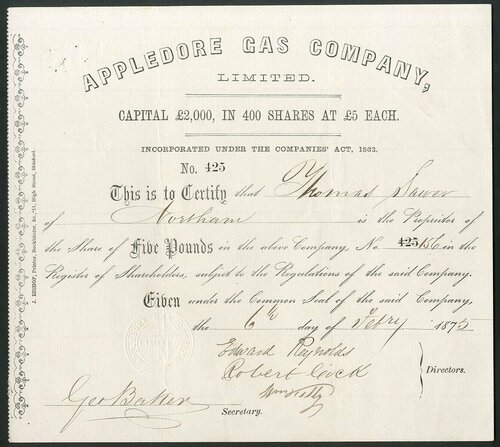 APPLEDORE GAS COMPANY,
LIMITED.
CAPITAL £2,000, IN 400 SHARES AT £5 EACH.
INCORPORATED UNDER THE COMPANIES' ACT, 1862.
No. 425
This is to Certify that Thomas Sawer
of Northam is the Proprietor of
the Share of Five Pounds in the above Company, No. 425 156 in the
Register of Shareholders, subject to the Regulations of the said Company.
Given under the Common Seal of the said Company,
the 6th day of Febry 1875
Edward Reynolds
Robert Cock
Directors.
Geo Baker
Secretary.
J. BISHOP, Printer, Bookbinder, &c., 71, High Street, Bideford.